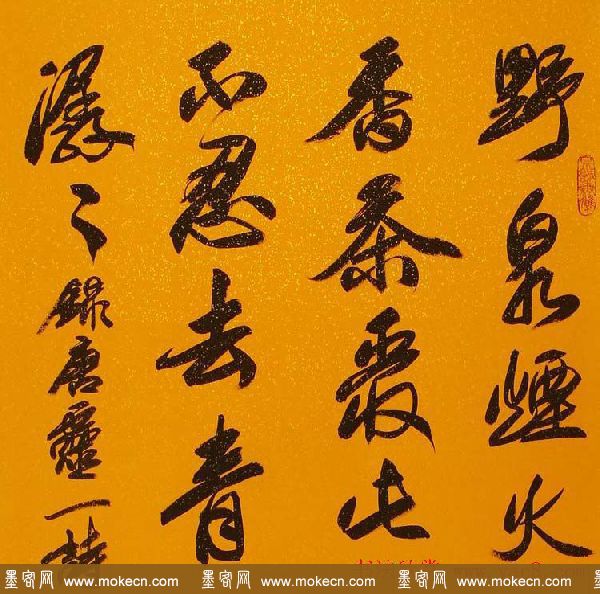 野泉煙火
香茶愛此
不忍去青
潺々錄唐靈一詩
墨客网 www.mokecn.com 墨客网 www.mokecn.com 墨客网 www.mokecn.com 墨